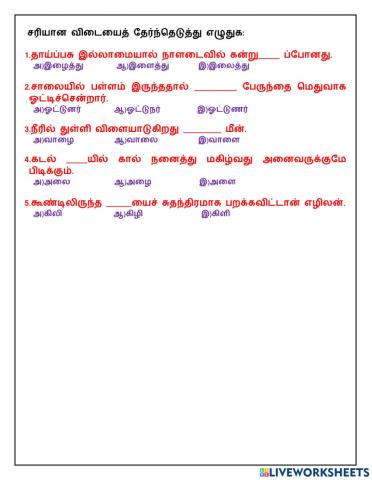 சரியான விடையைத் தேர்ந்தெடுத்து எழுதுக:
1.தாய்ப்பசு இல்லாமையால் நாளடைவில் கன்று____ ப்போனது.
அ)இழைத்து ஆ)இளைத்து இ)இலைத்து
2.சாலையில் பள்ளம் இருந்ததால் ________ பேருந்தை மெதுவாக
ஓட்டிச்சென்றார்.
அ)ஓட்டுனர் ஆ)ஓட்டுநர் இ)ஓட்டுணர்
3.நீரில் துள்ளி விளையாடுகிறது _______ மீன்.
அ)வாழை ஆ)வாலை இ)வாளை
4.கடல் ____யில் கால் நனைத்து மகிழ்வது அனைவருக்குமே
பிடிக்கும்.
அ)அலை ஆ)அழை இ)அளை
5.கூண்டிலிருந்த _____யைச் சுதந்திரமாக பறக்கவிட்டான் எழிலன்.
அ)கிலி ஆ)கிழி இ)கிளி
LIVEWORKSHEETS